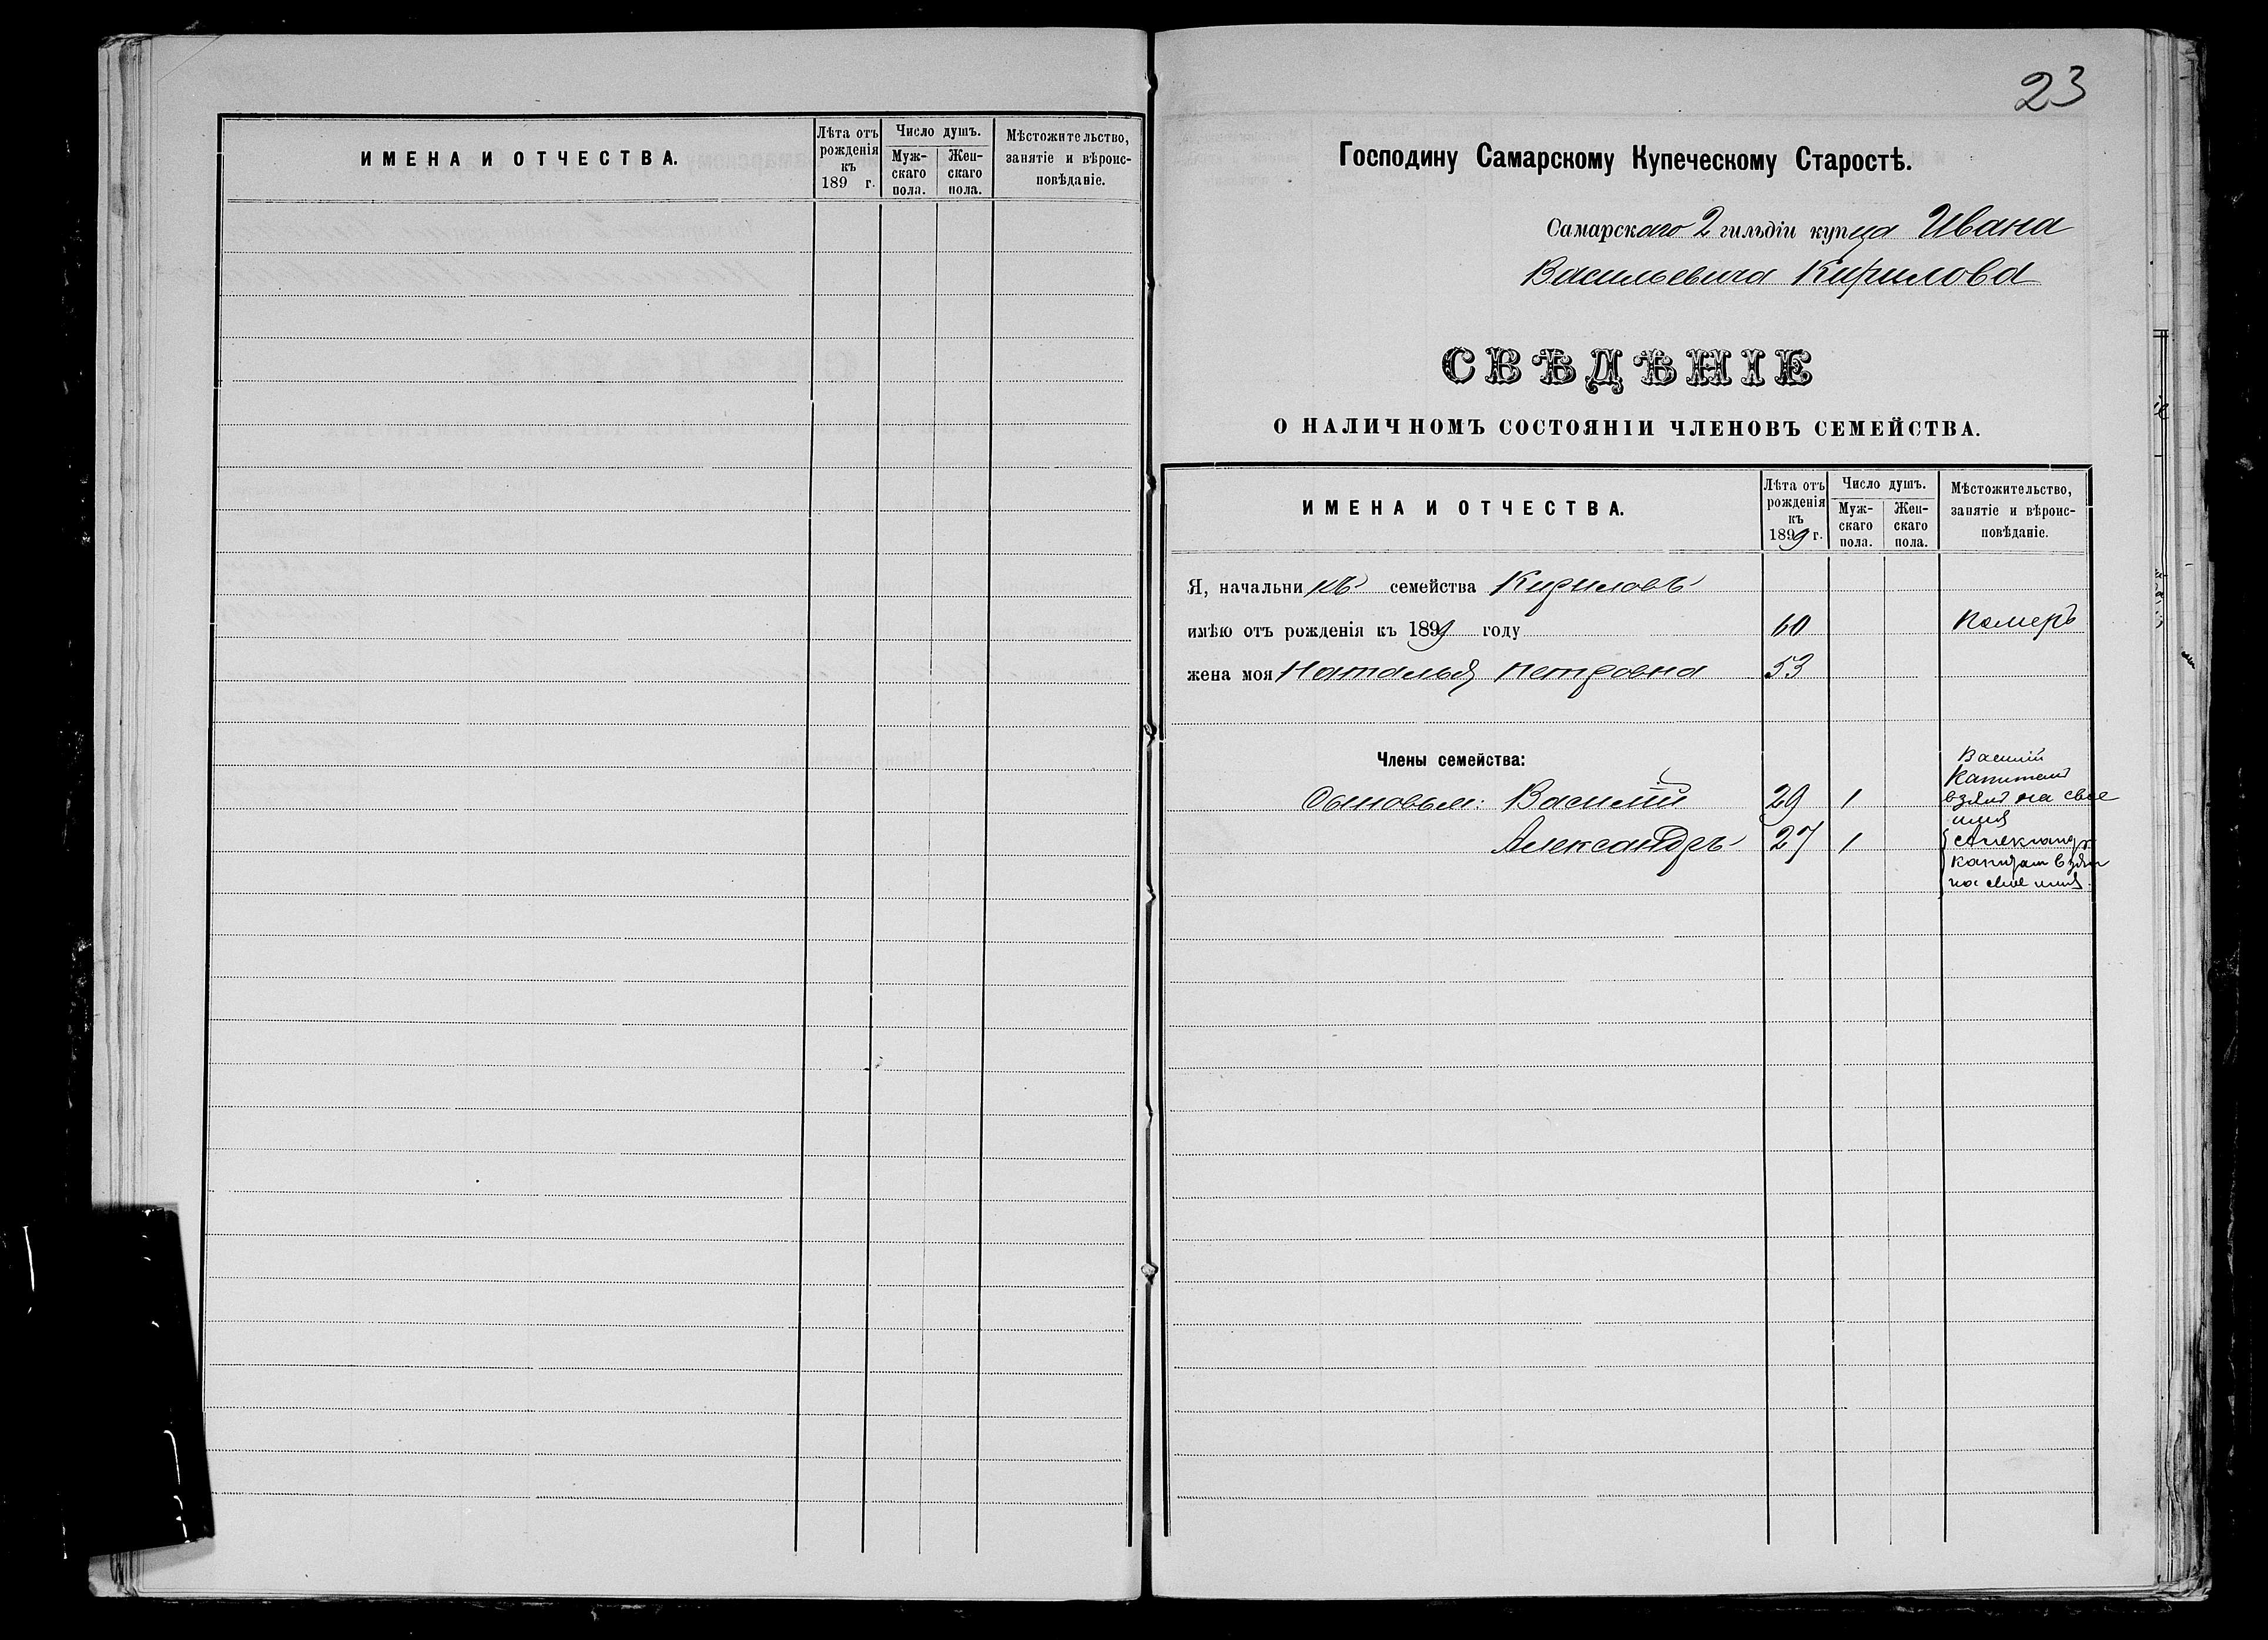 ИМЕНА И ОТЧЕСТВА.
Лѣта отъ рожденія къ 189 г.
Число душъ.
Мужскаго пола.
Женскаго пола.
Мѣстожительство, занятіе и вѣроисповѣданіе.
23
Господину Самарскому Купеческому Старостѣ.
Самарскаго 2 гильдіи купца Ивана
Васильевича Кирилова
СВѢДѢНІЕ
О НАЛИЧНОМЪ СОСТОЯНІИ ЧЛЕНОВЪ СЕМЕЙСТВА.
ИМЕНА И ОТЧЕСТВА.
Лѣта отъ рожденія къ 1899 г.
Число душъ.
Мужскаго пола.
Женскаго пола.
Мѣстожительство, занятіе и вѣроисповѣданіе.
Я, начальникъ семейства Кириловъ
имѣю отъ рожденія къ 1899 году 60 Померъ
жена моя Наталья Петровна 53
Члены семейства:
Сыновья: Василій 29 1
Василій
Капиталъ
взялъ на свое
имя
Александръ 27 1
Александръ
капитал взял
на свое имя.